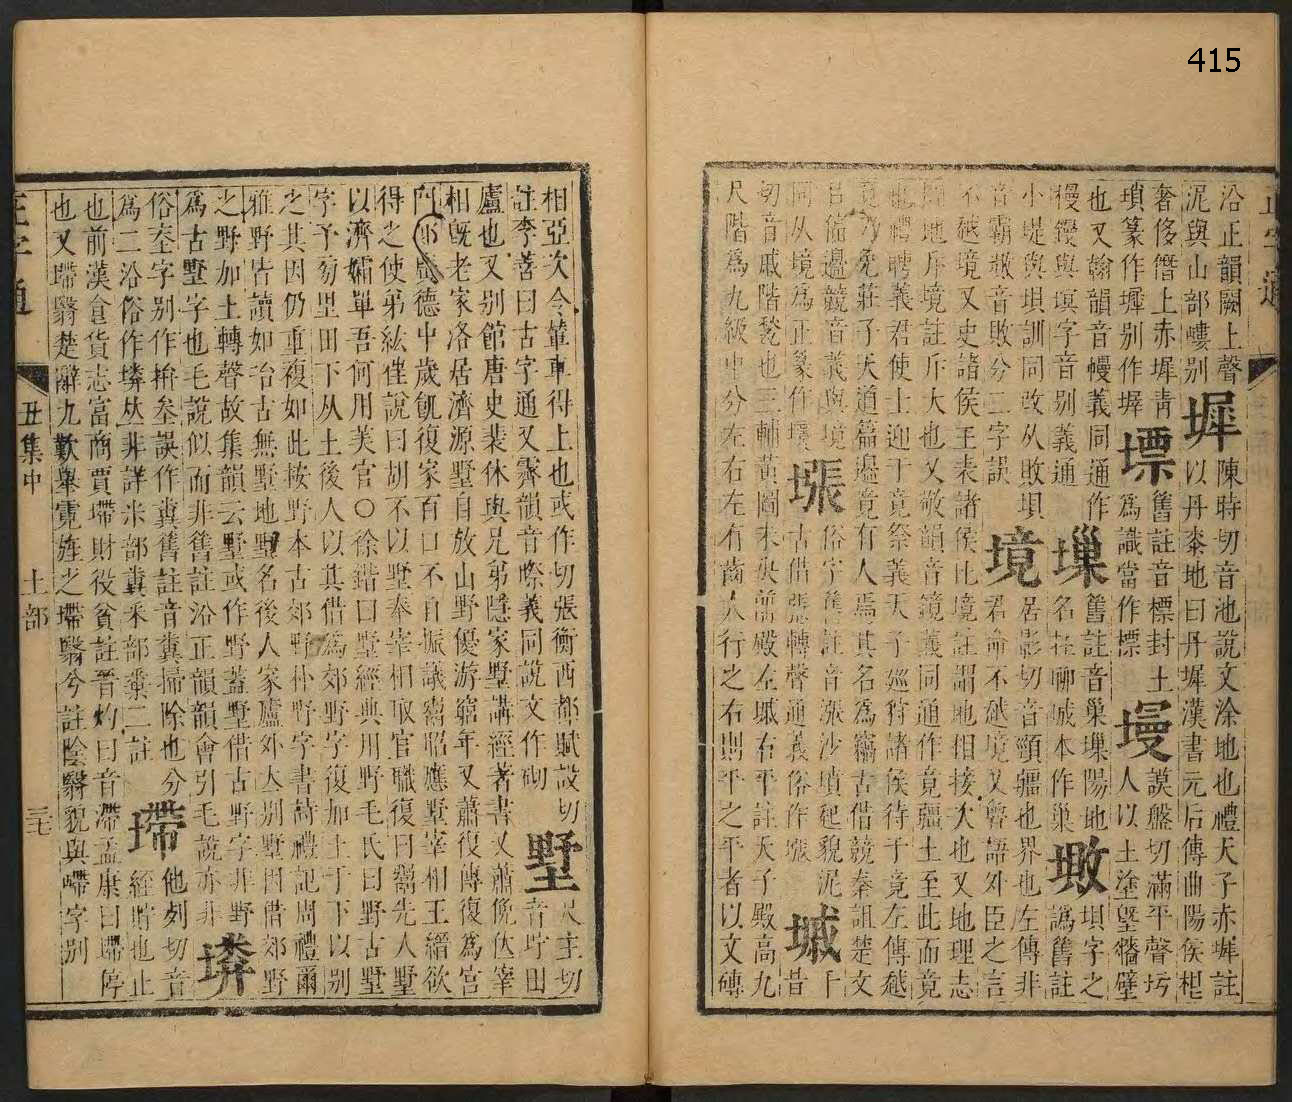 415
正字通
沿正韻闕上聲
泥與山部嶁別
墀
陳時切音池說文涂地也禮天子赤墀註
以丹桼地曰丹墀漢書元后傳曲陽侯根
奢侈僭上赤墀靑
瑣篆作墀別作墀
墂
舊註音標封土
爲識當作標
墁
謨盤切滿平聲圬
人以土塗墍牆壁
也又翰韻音幔義同通作
槾鏝與塓字音別義通
墚
舊註音巢墚陽地
名在聊城本作巢
塓字之
譌舊註
小堤與垻訓同改从敗垻
音霸敗音敗分二字誤
境
居影切音頸疆也界也左傳非
君命不越境又魯語外臣之言
不越境又史諸侯王表諸侯比境註謂地相接次也又地理志
地斥境註斥大也又敬韻音鏡義同通作竟疆土至此而竟
也禮聘義君使士迎于竟祭義天子巡狩諸侯待于竟左傳越
竟乃免莊子天道篇邊竟有人焉其名爲竊古借競秦詛楚文
邊競音義與境
同从境爲正篆作境
墬
俗字舊註音漲沙墳起貌泥
古借張轉聲通義俗作漲
墄
昔
切音戚階甃也三輔黃圖未央前殿左墄右平註天子殿高九
尺階爲九級中分左右左有齒人行之右則平之平者以文磚
相亞次令輦車得上也或作切張衡西都賦設切
註李善曰古字通又霽韻音際義同說文作砌
墅
承主切
音竚田
廬也又別館唐史裴休與兄弟隱家墅講經著書又蕭俛伏宰
相旣老家洛居濟源墅自放山野優游窮年又蕭復傳復爲宮
門郎廣德中歲飢復家百口不自振議鬻昭應墅宰相王縉欲
得之使弟紘說曰胡不以墅奉宰相取官職復曰鬻先人墅
以濟孀單吾何用美官○徐鍇曰墅經典用野毛氏曰野古墅
字予旁里田下从土後人以其借爲郊野字復加土于下以別
之其因仍重複如此按野本古郊野朴野字書詩禮記周禮爾
雅野皆讀如冶古無墅地墅名後人家廬外大別墅因借郊野
之野加土轉聲故集韻云墅或作野蓋墅借古野字非野
爲古墅字也毛說似而非舊註沿正韻韻會引毛說亦非
墷
俗坴字別作拚叁誤作糞舊註音糞掃除也分
爲二沿俗作墷𠀤非詳米部糞釆部二註
墆
他列切音
經貯也止
也前漢食貨志富商賈墆財役貧註晉灼曰音滯孟康曰墆停
也又墆翳楚辭九歎舉霓旌之墆翳兮註陰翳貌與嵽字別
正字通
丑集中
土部
三七